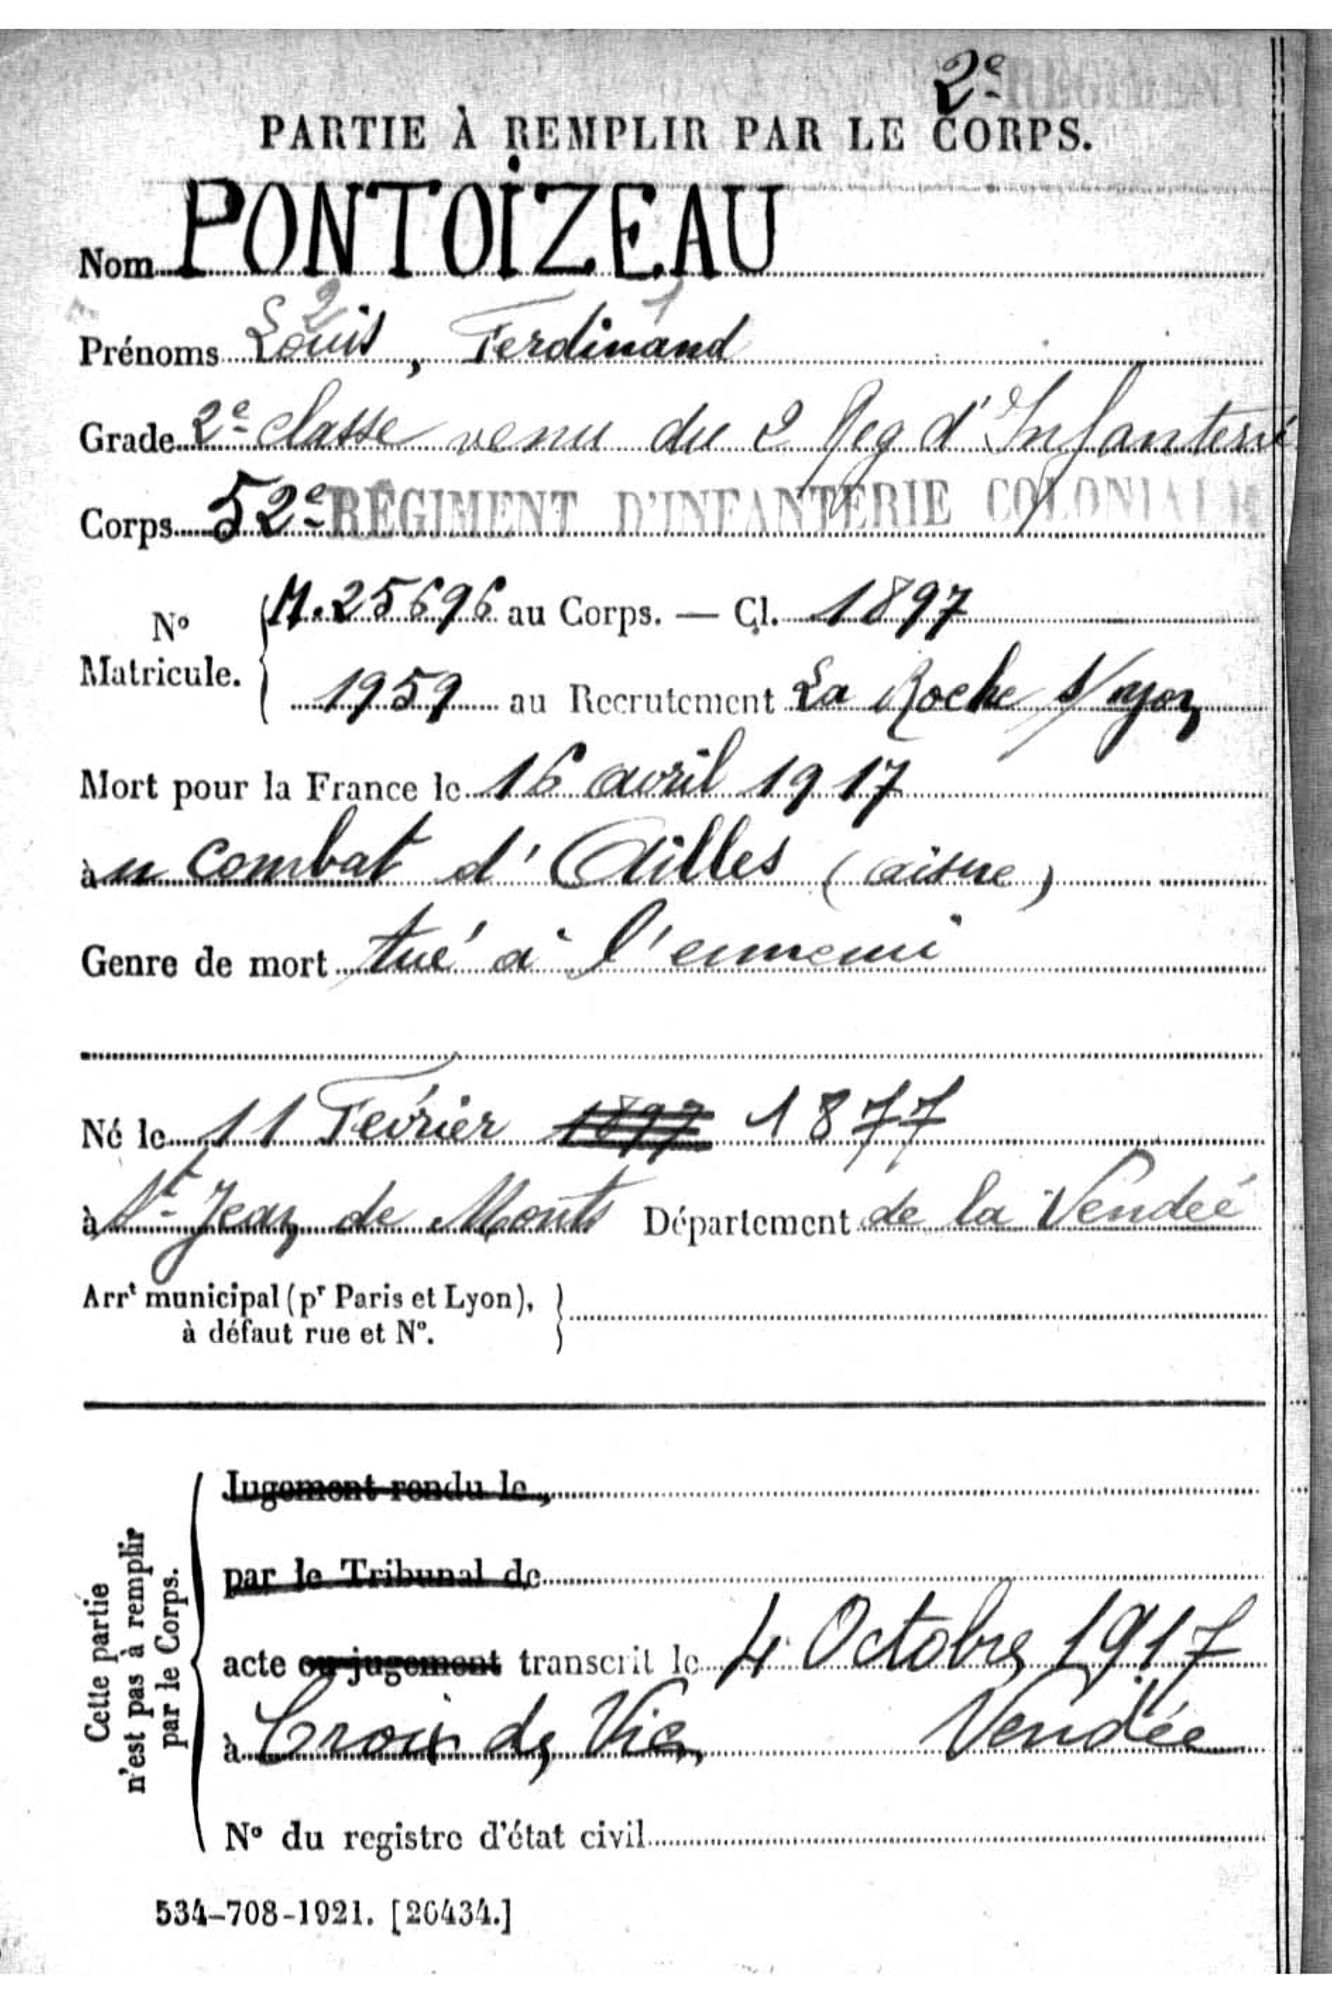 2e RÉGIMENT
PARTIE À REMPLIR PAR LE CORPS.
Nom PONTOIZEAU
2 1
Prénoms Louis, Ferdinand
Grade 2e classe venu du 2 Reg d'Infanterie
Corps 52e RÉGIMENT D'INFANTERIE COLONIALE
No Matricule. { M. 25696 au Corps. — Cl. 1897
1959 au Recrutement La Roche s/ yon
Mort pour la France le 16 avril 1917
au combat d'Ailles (aisne)
Genre de mort tué à l'ennemi
Né le 11 Février 1897 1877
à St Jean de Monts Département de la Vendée
Arrt municipal (pr Paris et Lyon), }
à défaut rue et No.
Cette partie
n'est pas à remplir
par le Corps.
Jugement rendu le,
par le Tribunal de
acte ou jugement transcrit le 4 Octobre 1917
à Croix de Vie Vendée
No du registre d'état civil
534-708-1921. [26434.]